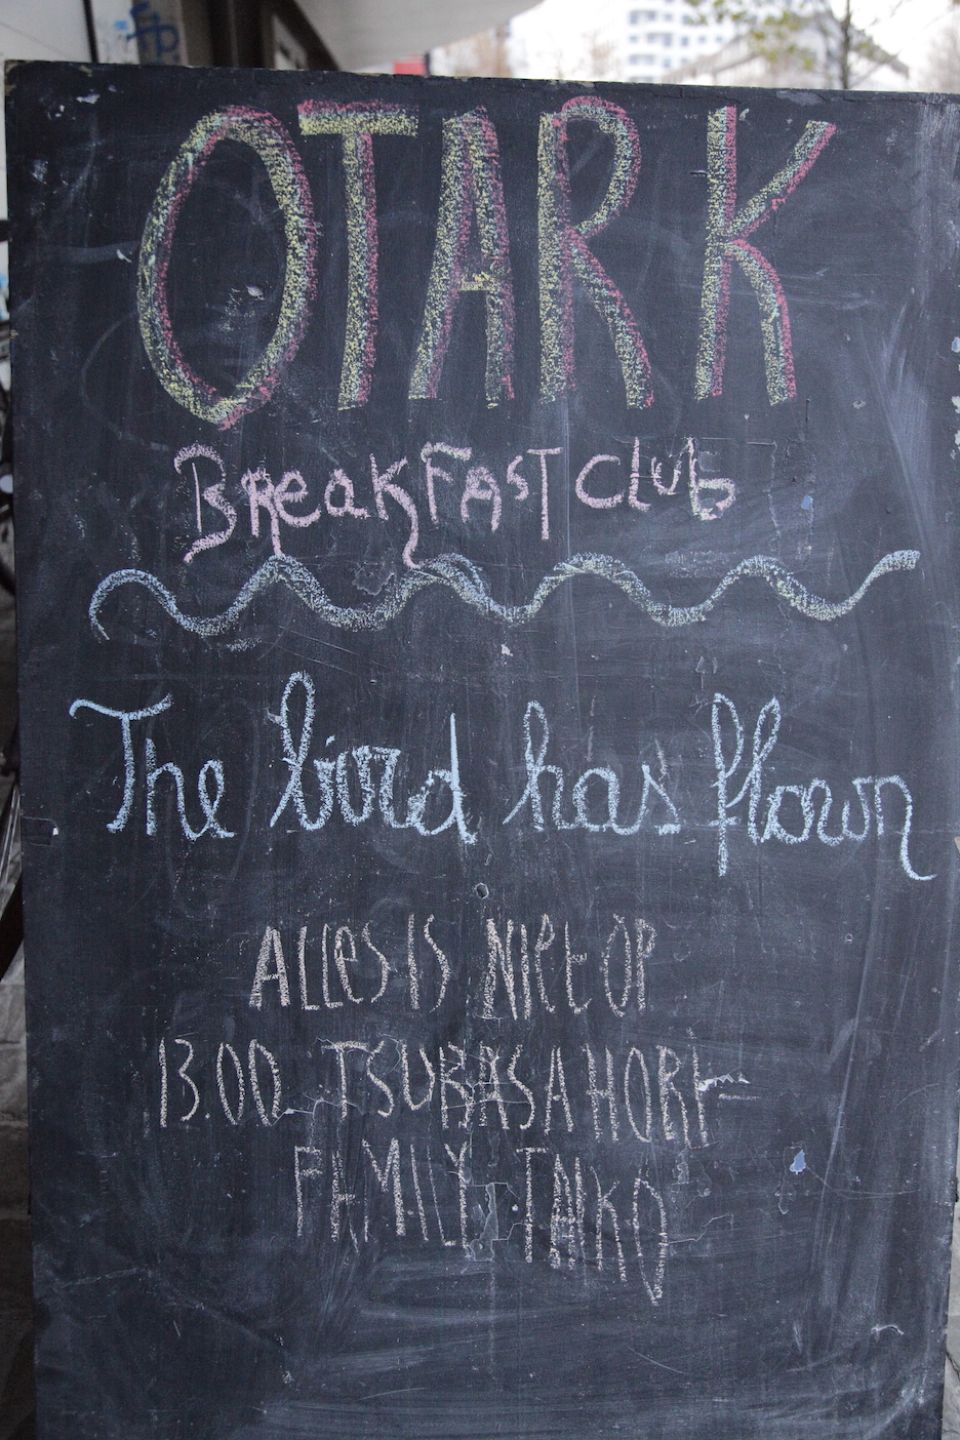 OTARK
BREAKFAST CLUB
The bird has flown
ALLES IS NIET OP
13.00 TSUBASA HORI
FAMILY TAIKO